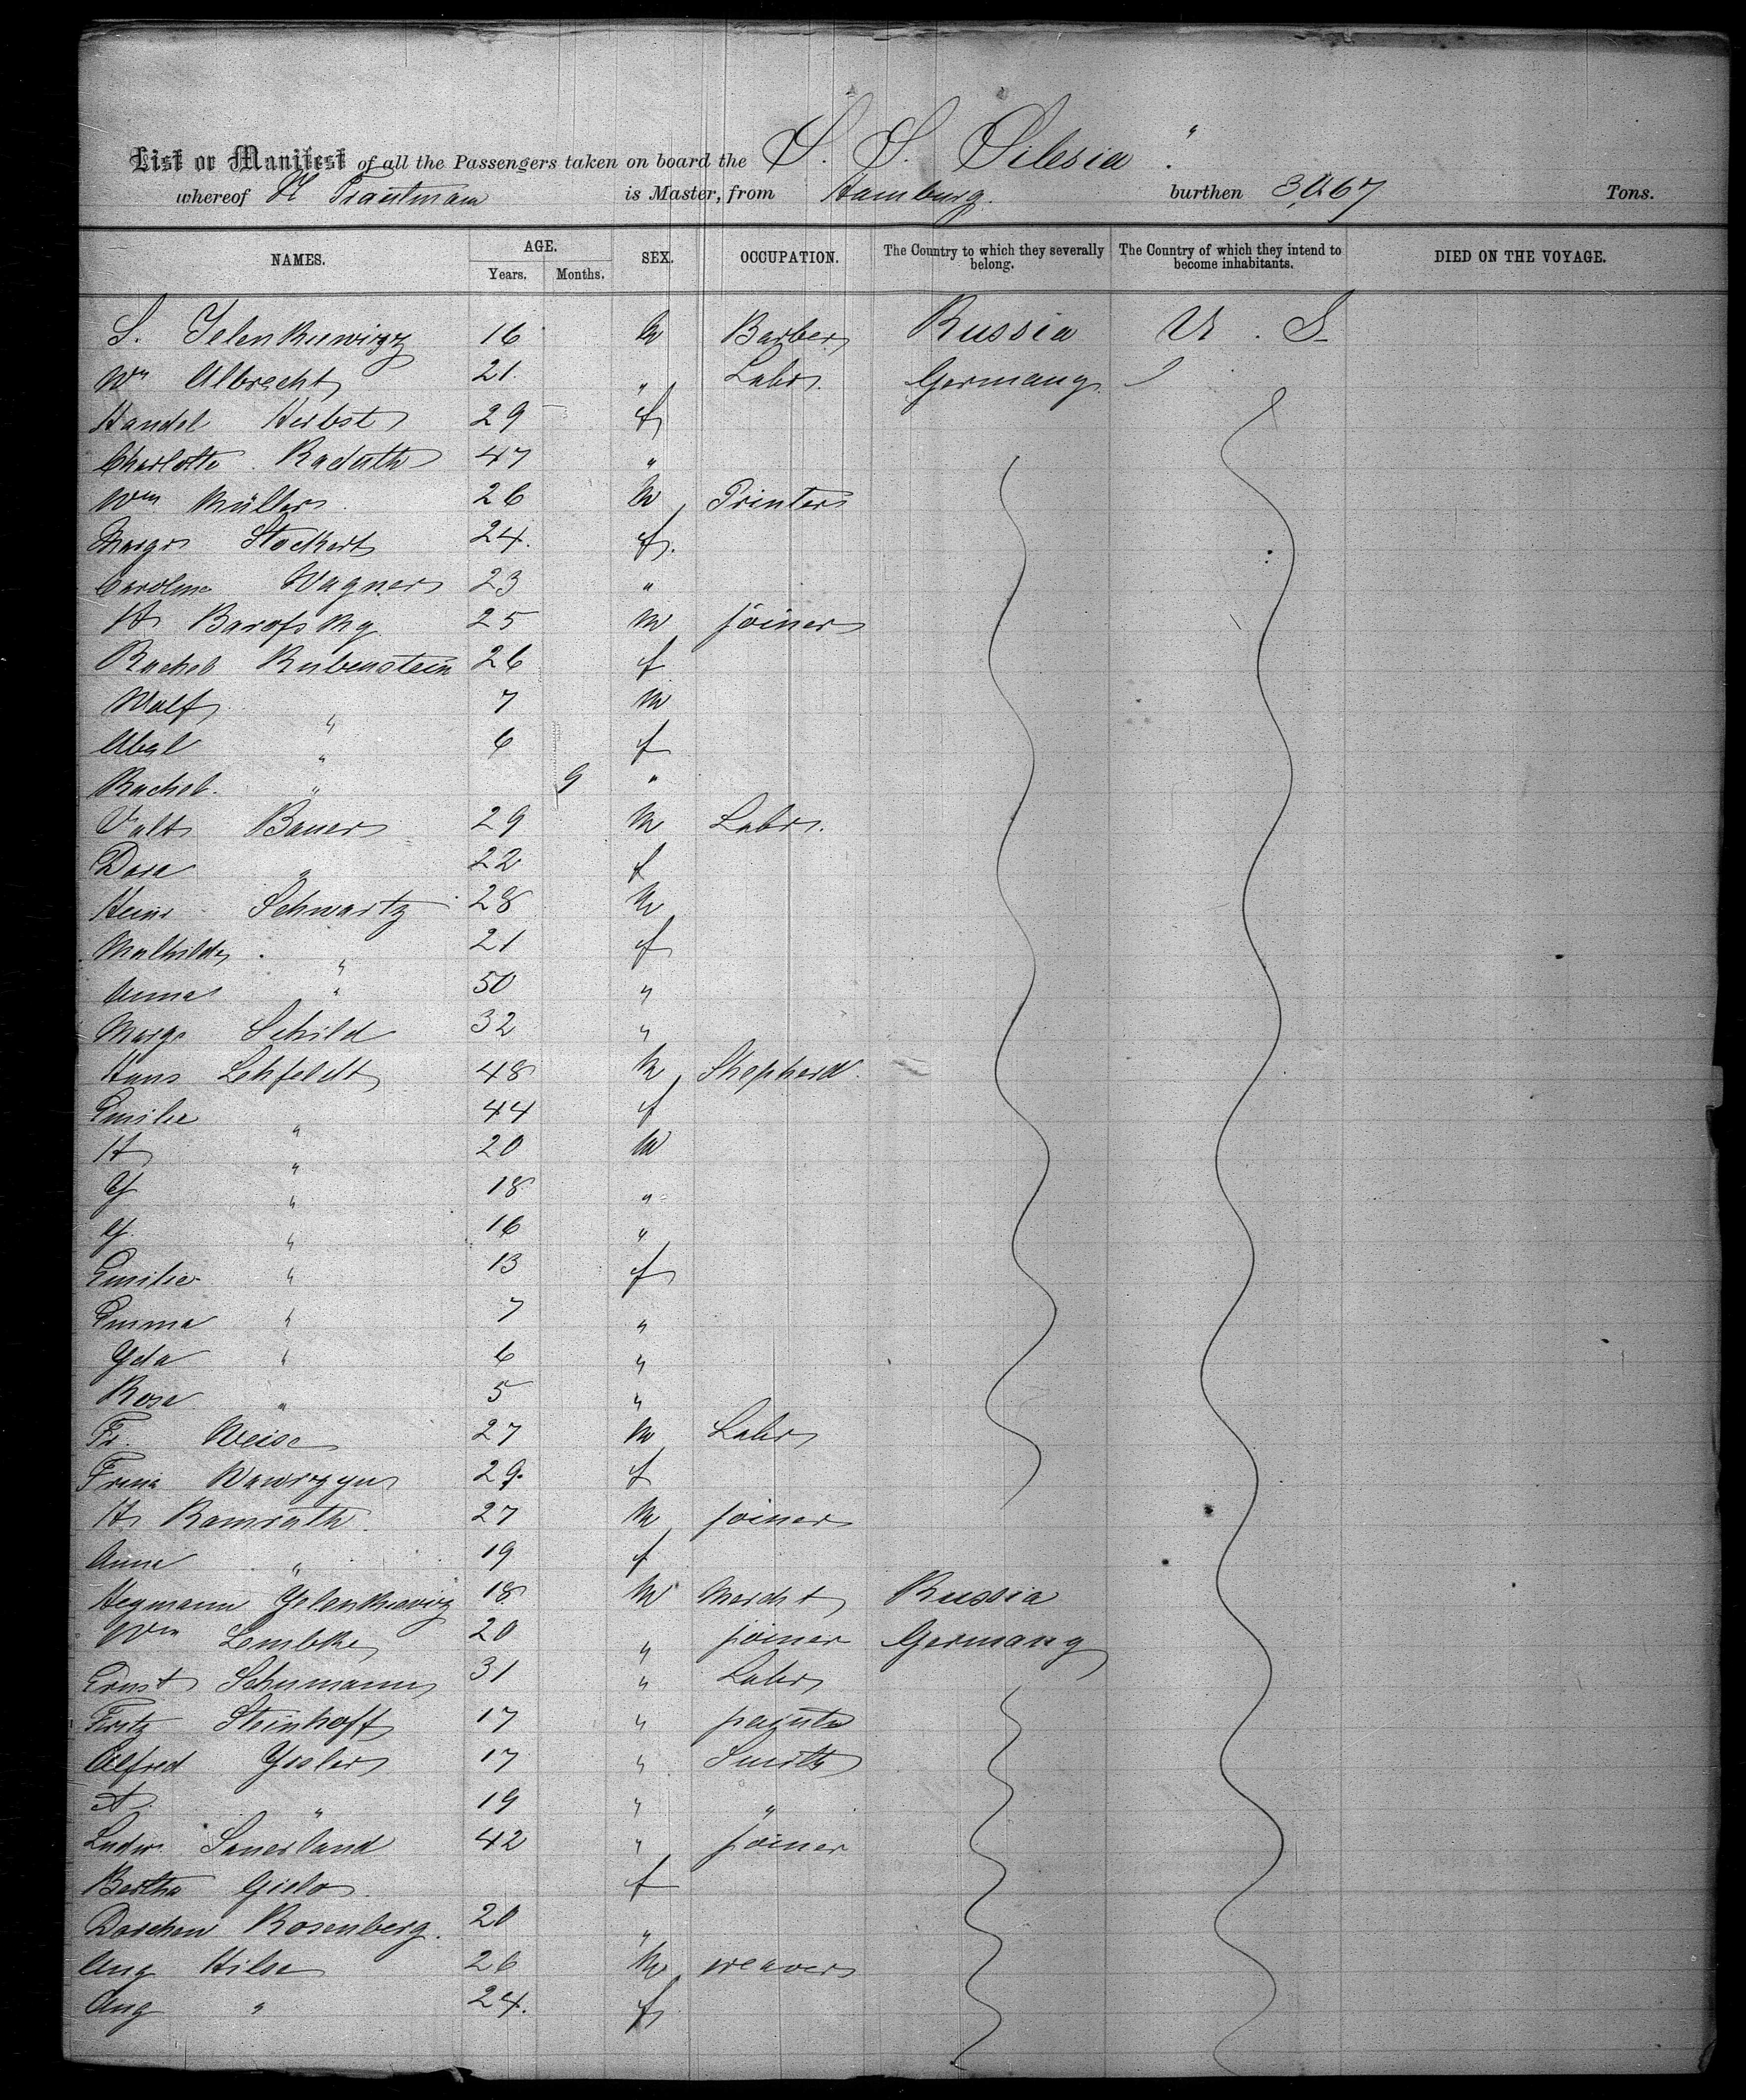 S. S. Silesia "
List or Manifest of all the Passengers taken on board the
whereof H Trautmann is Master, from Hamburg. burthen 3,067 Tons.
NAMES. AGE. SEX. OCCUPATION. The Country to which they severally belong. The Country of which they intend to become inhabitants. DIED ON THE VOYAGE.
Years. Months.
S. 16 M Barber Russia U. S.
Wm Albrecht 21. " Labr. Germany
Handel Herbst 29 f
Charlotte Radath 47 "
Wm Müller 26 M Printer
Margr Stockert 24. f.
Caroline Wagner 23 "
H Barofsky 25 M joiner
Rachel Rubenstein 26 f
Wolf " 7 M
Abel " 6 f
Rachel. " 9 "
Valt Bauer 29 M Labr.
Dora " 22 f
Heinr Schwartz 28 M
Mathilde " 21 f
Anna " 50 "
Margr Schild 32 "
Hans Lehfeldt 48 M Shepherd.
Emilie " 44 f
H " 20 M
" 18 "
" 16 "
Emilie " 13 f
Emma " 7 "
Yda " 6 "
Rosa " 5 "
Fr. Weise 27 M Labr
Wawrzyn 29. f
H Ramrath 27 M joiner
Anna " 19 f
Heymann 18 M Mercht Russia
Wm Lembke 20 " joiner Germany
Ernst Schumann 31 " Labr
Fritz Steinhoff 17 " painter
Alfred 17 " Smith
A. " 19 " "
Ludw. Sauerland 42 " joiner
Bertha f
Dorchen Rosenberg. 20 "
Aug Hilse 26 M weaver
Aug " 24. f